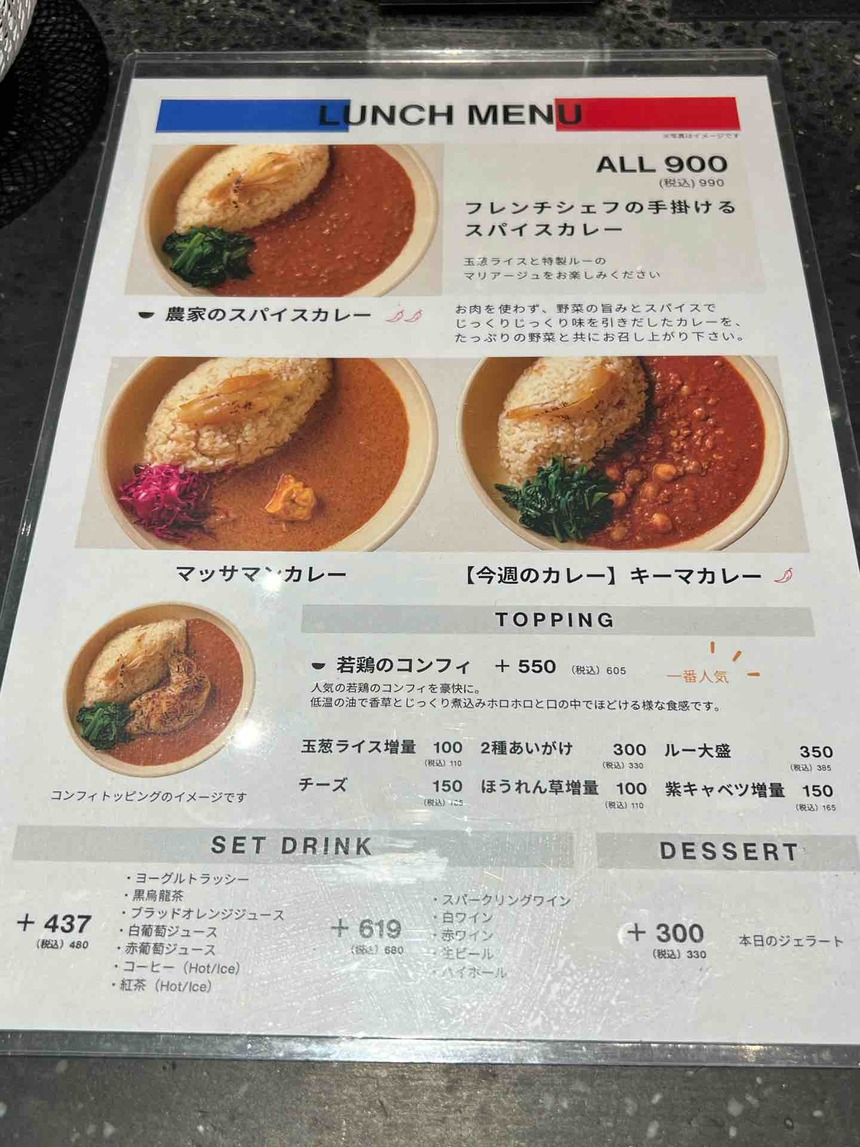 LUNCH MENU
※写真はイメージです
ALL 900
(税込) 990
フレンチシェフの手掛ける
スパイスカレー
玉葱ライスと特製ルーの
マリアージュをお楽しみください
農家のスパイスカレー
お肉を使わず、野菜の旨みとスパイスで
じっくりじっくり味を引きだしたカレーを、
たっぷりの野菜と共にお召し上がり下さい。
マッサマンカレー
【今週のカレー】キーマカレー
TOPPING
若鶏のコンフィ +550 (税込) 605
一番人気
人気の若鶏のコンフィを豪快に。
低温の油で香草とじっくり煮込みホロホロと口の中でほどける様な食感です。
玉葱ライス増量 100 2種あいがけ 300 ルー大盛 350
(税込) 110 (税込) 330 (税込) 385
チーズ 150 ほうれん草増量 100 紫キャベツ増量 150
(税込) 165 (税込) 110 (税込) 165
コンフィトッピングのイメージです
SET DRINK
+437
(税込) 480
・ヨーグルトラッシー
・黒烏龍茶
・ブラッドオレンジジュース
・白葡萄ジュース
・赤葡萄ジュース
・コーヒー (Hot/Ice)
・紅茶 (Hot/Ice)
+619
(税込) 680
・スパークリングワイン
・白ワイン
・赤ワイン
・生ビール
・ハイボール
DESSERT
+300
(税込) 330
本日のジェラート